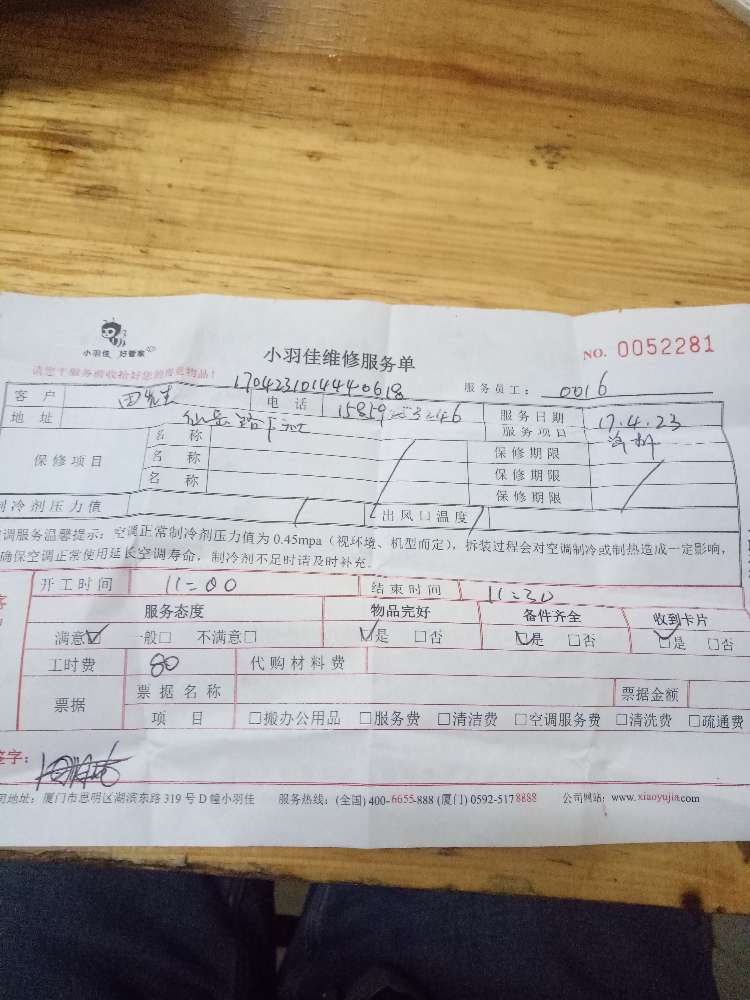 小羽佳 好管家
小羽佳维修服务单
NO. 0052281
请您于服务前收拾好您的贵重物品!
1704231014440618
服务员工: 0016
客户 田先生 电话 15859 服务日期 17.4.23
地址 服务项目
保修项目 名称 保修期限
名称 保修期限
名称 保修期限
制冷剂压力值 出风口温度
调服务温馨提示:空调正常制冷剂压力值为 0.45mpa(视环境、机型而定),拆装过程会对空调制冷或制热造成一定影响,
确保空调正常使用延长空调寿命,制冷剂不足时请及时补充。
开工时间 11:00 结束时间 11:30
服务态度 物品完好 备件齐全 收到卡片
满意☑ 一般□ 不满意□ ☑是 □否 ☑是 □否 ☑是 □否
工时费 80 代购材料费
票据 票据名称 票据金额
项目 □搬办公用品 □服务费 □清洁费 □空调服务费 □清洗费 □疏通费
签字:
地址:厦门市思明区湖滨东路 319 号 D 幢小羽佳 服务热线:(全国) 400-6655-888 (厦门) 0592-5178888 公司网站:www.xiaoyujia.com